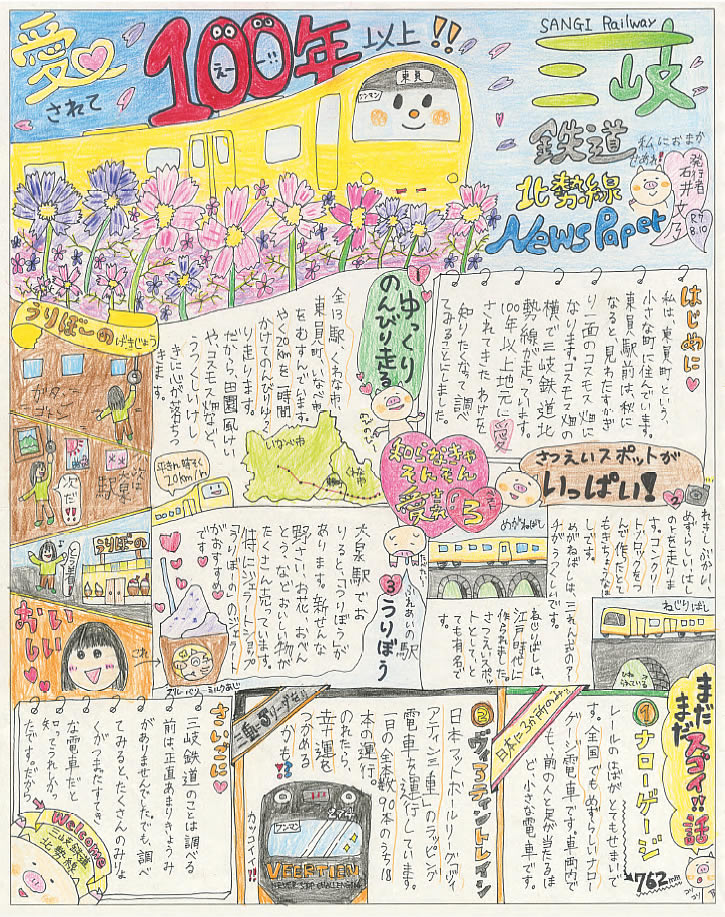 愛されて
100年以上!!
えーー!!
東員
ワンマン
SANGI Railway
三岐
鉄道
北勢線
NewsPaper
私におまかせあれ!
発行者
石井文乃
R7.
8.10
はじめに
私は、東員町という、
小さな町に住んでいます。
東員駅前は、秋に
なると見わたすかぎ
り一面のコスモス畑に
なります。コスモス畑の
横で三岐鉄道北
勢線が走っています。
100年以上地元に愛
されてきたわけを
知りたくなって調べ
てみることにしました。
1
ゆっくり
のんびり走る
全13駅、くわな市、
東員町、いなべ市、
をむすんでいます。
やく20kmを一時間
かけてのんびりゆっく
り走ります。
だから、田園風けい
やコスモス畑など、
うつくしいけし
きに心が落ちつ
きます。
いなべ市
くわな市
平きん時そく
20km/h
知らなきゃ
そんそん
愛言葉
3
うりぼーの
げきじょう
ガタン
ゴトン
次は
駅
次だ!!
とう着!!
うりぼーの
おいしい
これ
ブルーベリーミルクあじ
2
さつえいスポットが
いっぱい!
れきしぶかい、
めずらしいはし
の上を走りま
す。コンクリー
トブロックをつ
んで作だとて
もきちょうなは
しです。
めがねばしは、三れん式のアー
チがうつくしいです。
めがねばし
ねじりばしは、
江戸時代に
作られました。
さつえいスポッ
トとしてと
ても有名で
す
ねじりばし
ふれあいの駅
3 うりぼう
大泉駅でお
りると、「うりぼう」が
あります。新せんな
野さい、お花、おべん
とうなどおいしい物が
たくさん売っています。
特にジェラートショップ
「うりぼーの」のジェラート
がおすすめ
です
まだまだ
スゴイ!!話
1 ナローゲージ
レールのはばがとてもせまいで
す。全国でもめずらしいナロー
ゲージ電車です。車両内で
も、前の人と足が当たるほ
ど、小さな電車です。
762mm
日本に3か所のみ!!
2 ヴィアティントレイン
日本フットボールリーグ「ヴィ
アティン三重」のラッピング
電車を運行しています。
一日の全本数90本のうち18
本の運行。
のれたら、
幸運を
つかめる
かも!?
ワンマン
VEERTIEN
NEVER STOP CHALLENGING
カッコイイ!!
さいごに
三岐鉄道のことは調べる
前は、正直あまりきょうみ
がありませんでした。でも、調べ
てみるとたくさんのみりょ
くがつまったすてき
な電車だと
知ってうれしかっ
たです。だから、
Welcome
三岐鉄道
北勢線